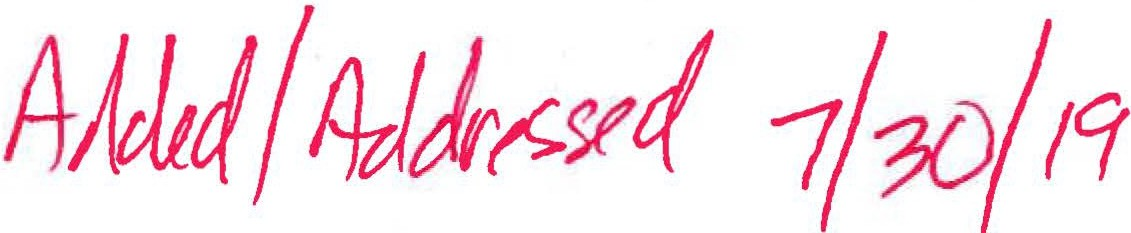 Added/Addressed 7/30/19